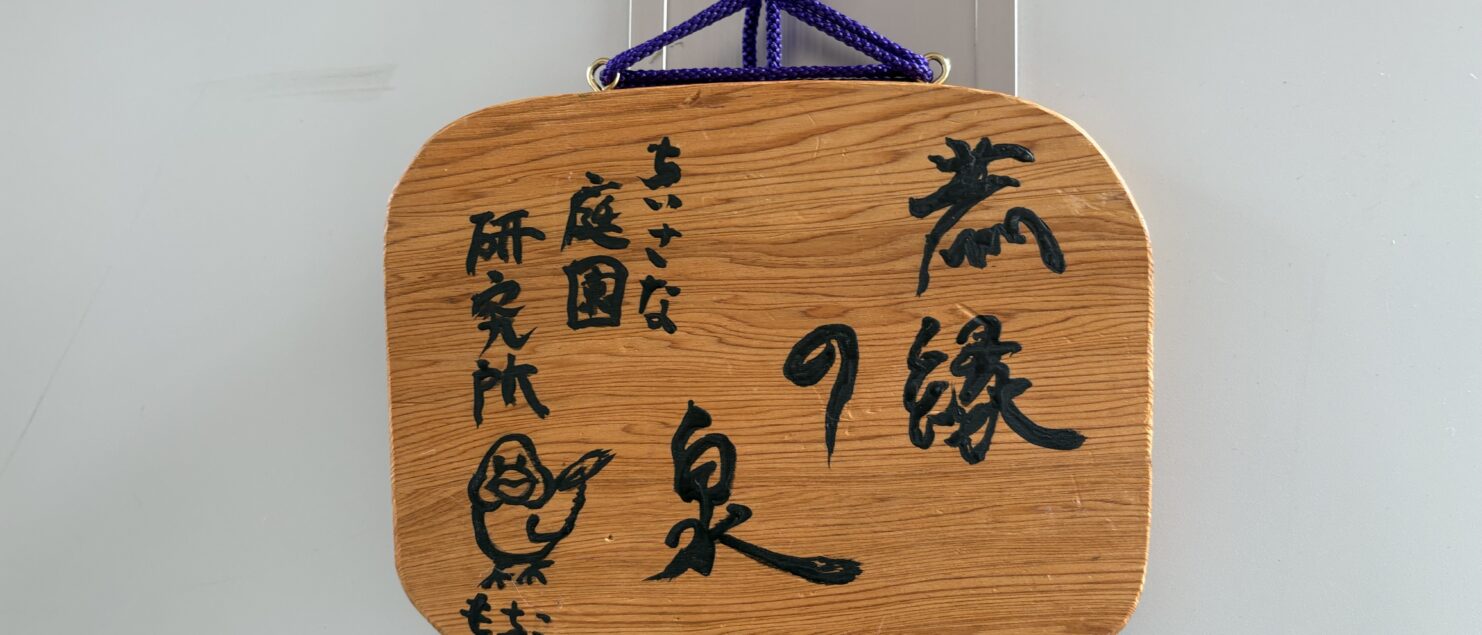 縁
の
泉
ちいさな
庭園
研究所